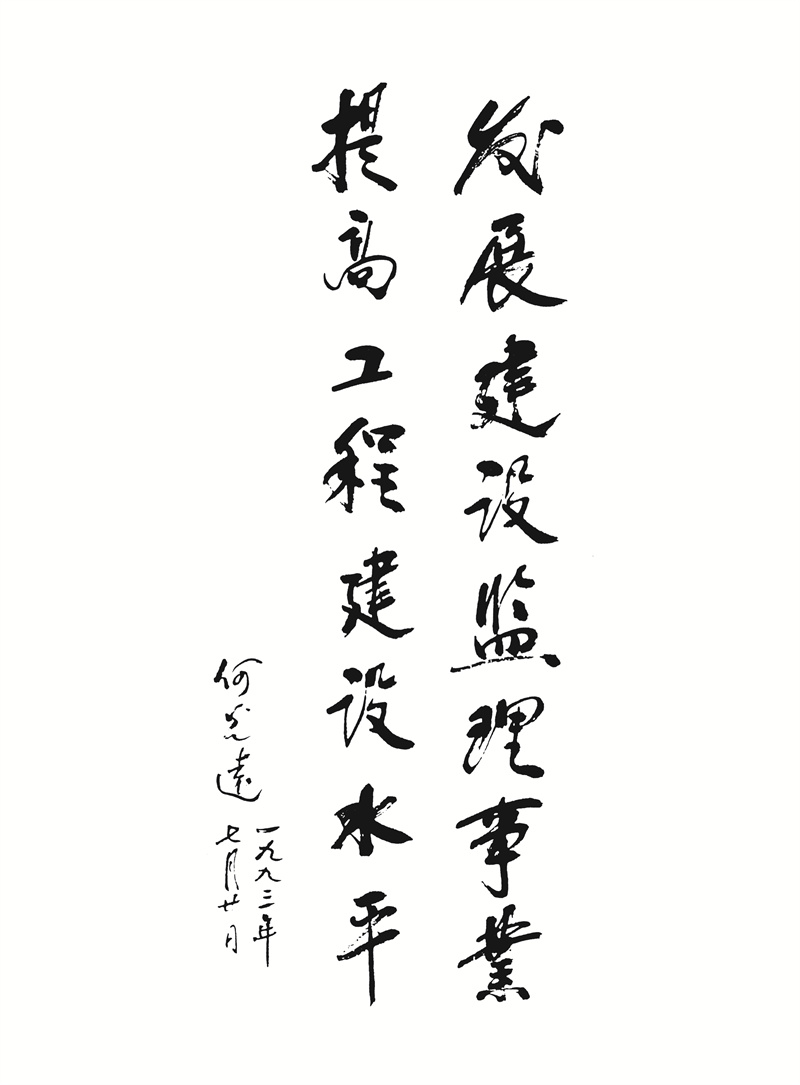 发展建设监理事業
提高工程建设水平
何光遠
一九九三年
七月廿日